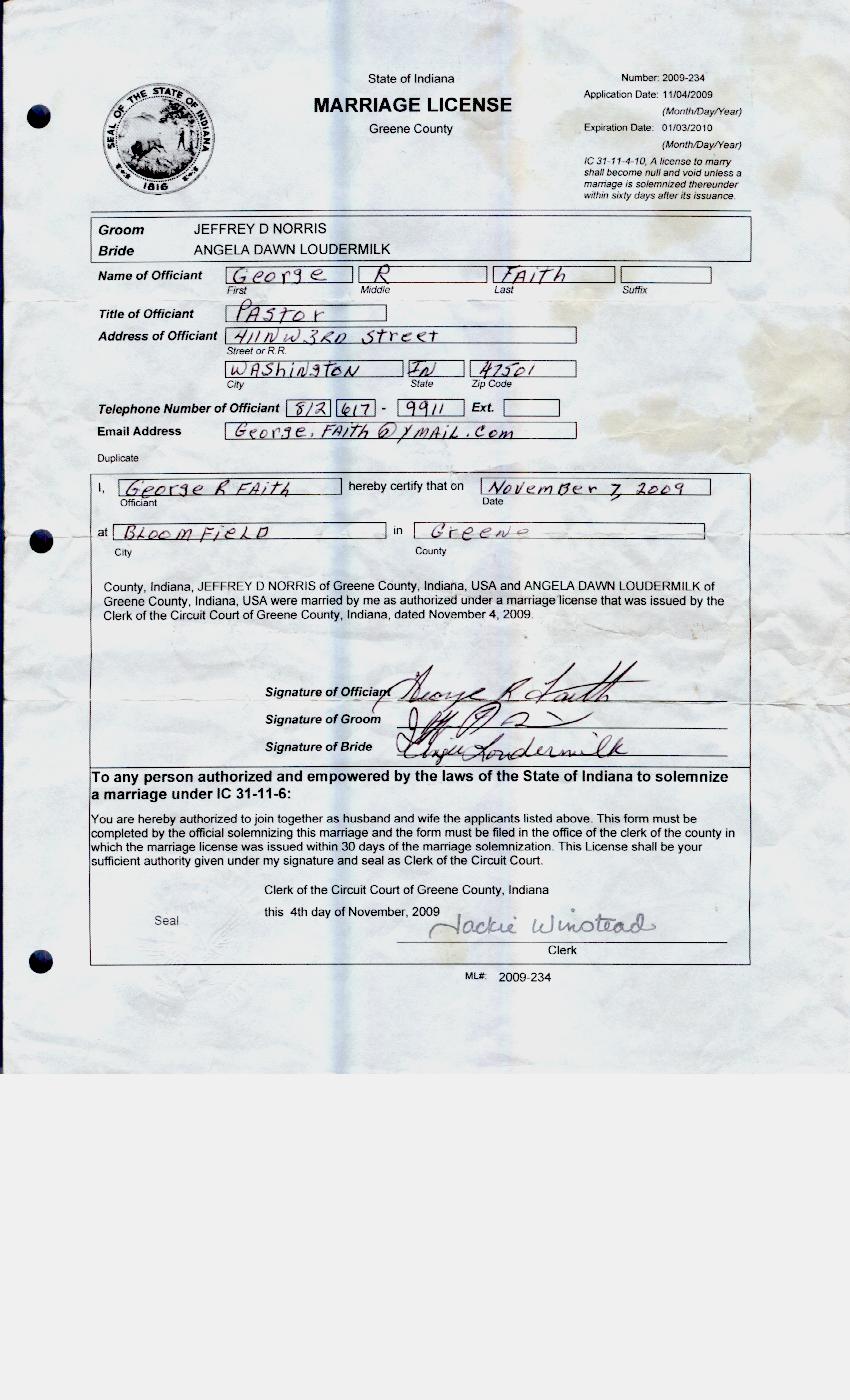 State of Indiana
MARRIAGE LICENSE
Greene County
Number: 2009-234
Application Date: 11/04/2009
(Month/Day/Year)
Expiration Date: 01/03/2010
(Month/Day/Year)
IC 31-11-4-10, A license to marry
shall become null and void unless a
marriage is solemnized thereunder
within sixty days after its issuance.
SEAL OF THE STATE OF INDIANA
1816
Groom JEFFREY D NORRIS
Bride ANGELA DAWN LOUDERMILK
Name of Officiant George R FAith
First Middle Last Suffix
Title of Officiant PAstor
Address of Officiant 411 NW 3RD Street
Street or R.R.
WAShingtoN IN 47501
City State Zip Code
Telephone Number of Officiant 812 617 - 9911 Ext.
Email Address George.FAith@YMAiL.Com
Duplicate
I, George R FAith hereby certify that on NovemBer 7, 2009
Officiant Date
at BLoomFieLD in Greene
City County
County, Indiana, JEFFREY D NORRIS of Greene County, Indiana, USA and ANGELA DAWN LOUDERMILK of
Greene County, Indiana, USA were married by me as authorized under a marriage license that was issued by the
Clerk of the Circuit Court of Greene County, Indiana, dated November 4, 2009.
Signature of Officiant George R Faith
Signature of Groom
Signature of Bride Angie Loudermilk
To any person authorized and empowered by the laws of the State of Indiana to solemnize
a marriage under IC 31-11-6:
You are hereby authorized to join together as husband and wife the applicants listed above. This form must be
completed by the official solemnizing this marriage and the form must be filed in the office of the clerk of the county in
which the marriage license was issued within 30 days of the marriage solemnization. This License shall be your
sufficient authority given under my signature and seal as Clerk of the Circuit Court.
Clerk of the Circuit Court of Greene County, Indiana
this 4th day of November, 2009
Seal
Jackie Winstead
Clerk
ML#: 2009-234